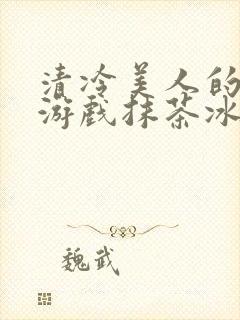 清冷美人的
游戏抹茶冰
魏武